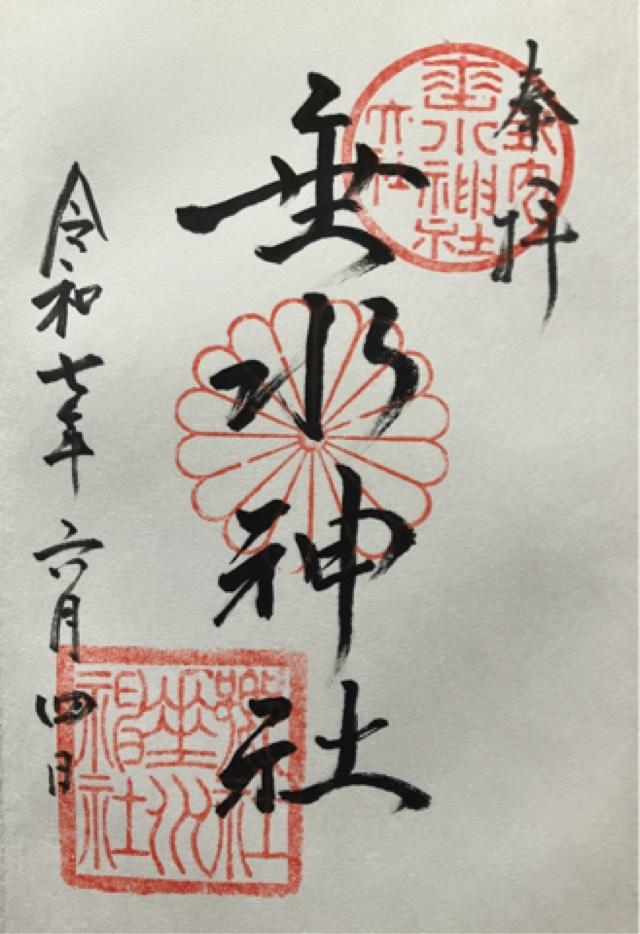 奉拝
垂水神社
令和七年六月四日
垂水神社